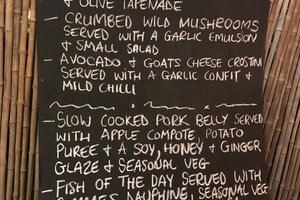 & OLIVE TAPENADE
- CRUMBED WILD MUSHROOMS
SERVED WITH A GARLIC EMULSION
& SMALL SALAD
- AVOCADO & GOATS CHEESE CROSTINI
SERVED WITH A GARLIC CONFIT &
MILD CHILLI
- SLOW COOKED PORK BELLY SERVED
WITH APPLE COMPOTE, POTATO
PUREE & A SOY, HONEY & GINGER
GLAZE & SEASONAL VEG
- FISH OF THE DAY SERVED WITH
DAUPHINE, SEASONAL VEG